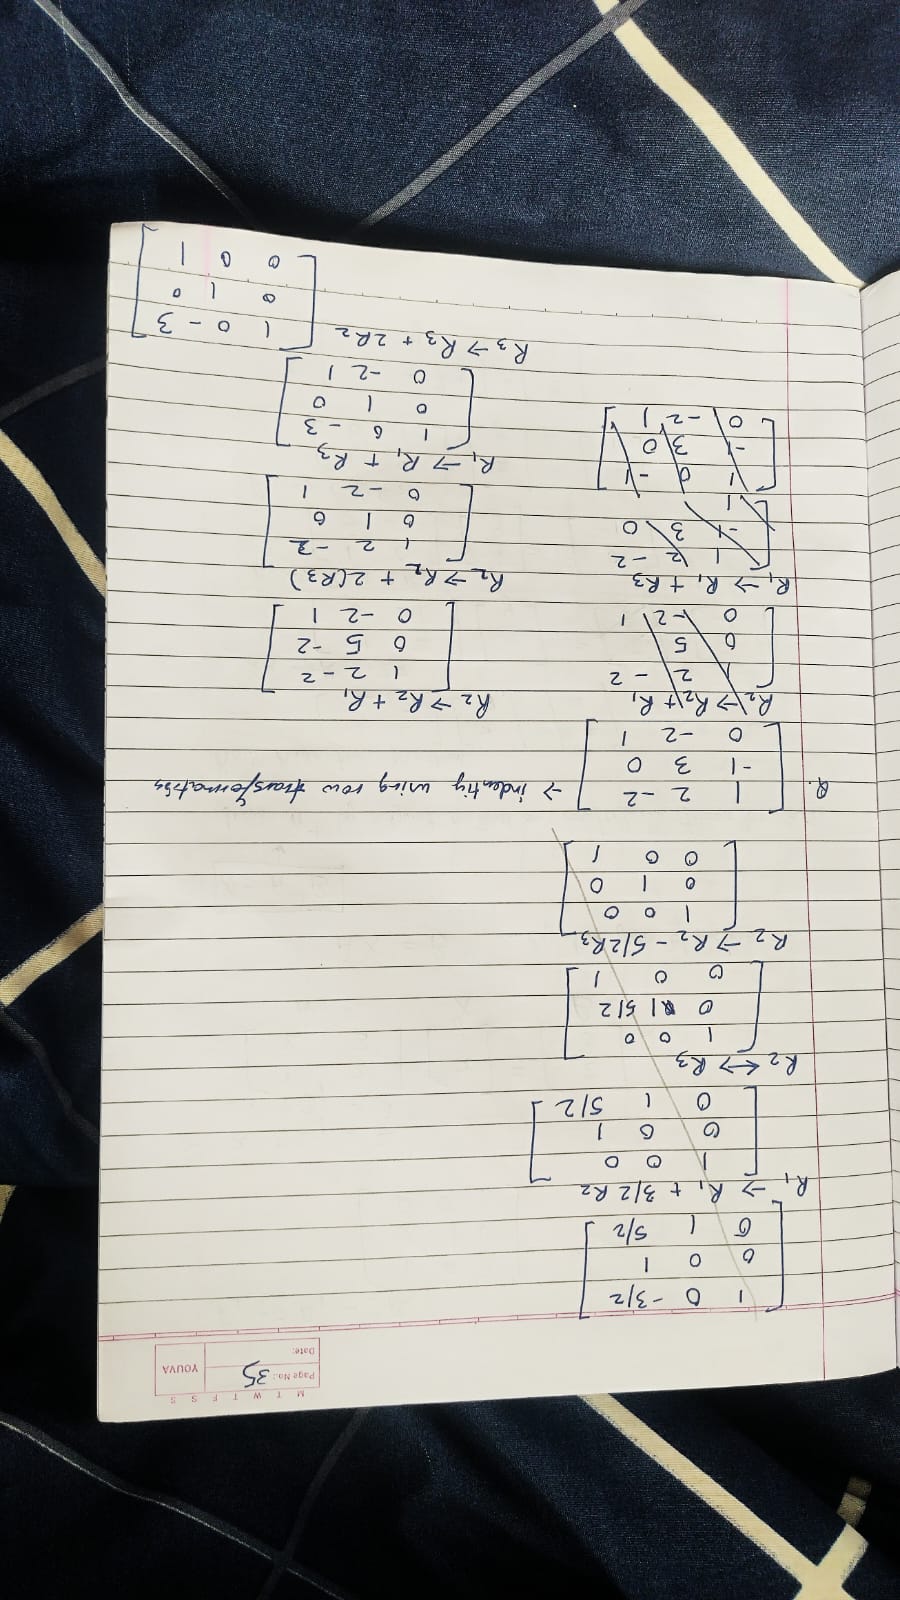 M T W T F S S
Page No.: 35
YOUVA
Date:
1 0 -3/2
0 0 1
0 1 5/2
R1 → R1 + 3/2 R2
1 0 0
0 0 1
0 1 5/2
R2 ↔ R3
1 0 0
0 1 5/2
0 0 1
R2 → R2 - 5/2R3
1 0 0
0 1 0
0 0 1
Q. 1 2 -2 → indentiy using row transformation
-1 3 0
0 -2 1
R2 → R2 + R1
1 2 -2
0 5
0 -2 1
R1 → R1 + R3
1 2 -2
-1 3 0
1
1 0 -1
-1 3 0
0 -2 1
R2 → R2 + R1
1 2 -2
0 5 -2
0 -2 1
R2 → R2 + 2(R3)
1 2 -2
0 1 0
0 -2 1
R1 → R1 + R3
1 0 -3
0 1 0
0 -2 1
R3 → R3 + 2R2
1 0 -3
0 1 0
0 0 1